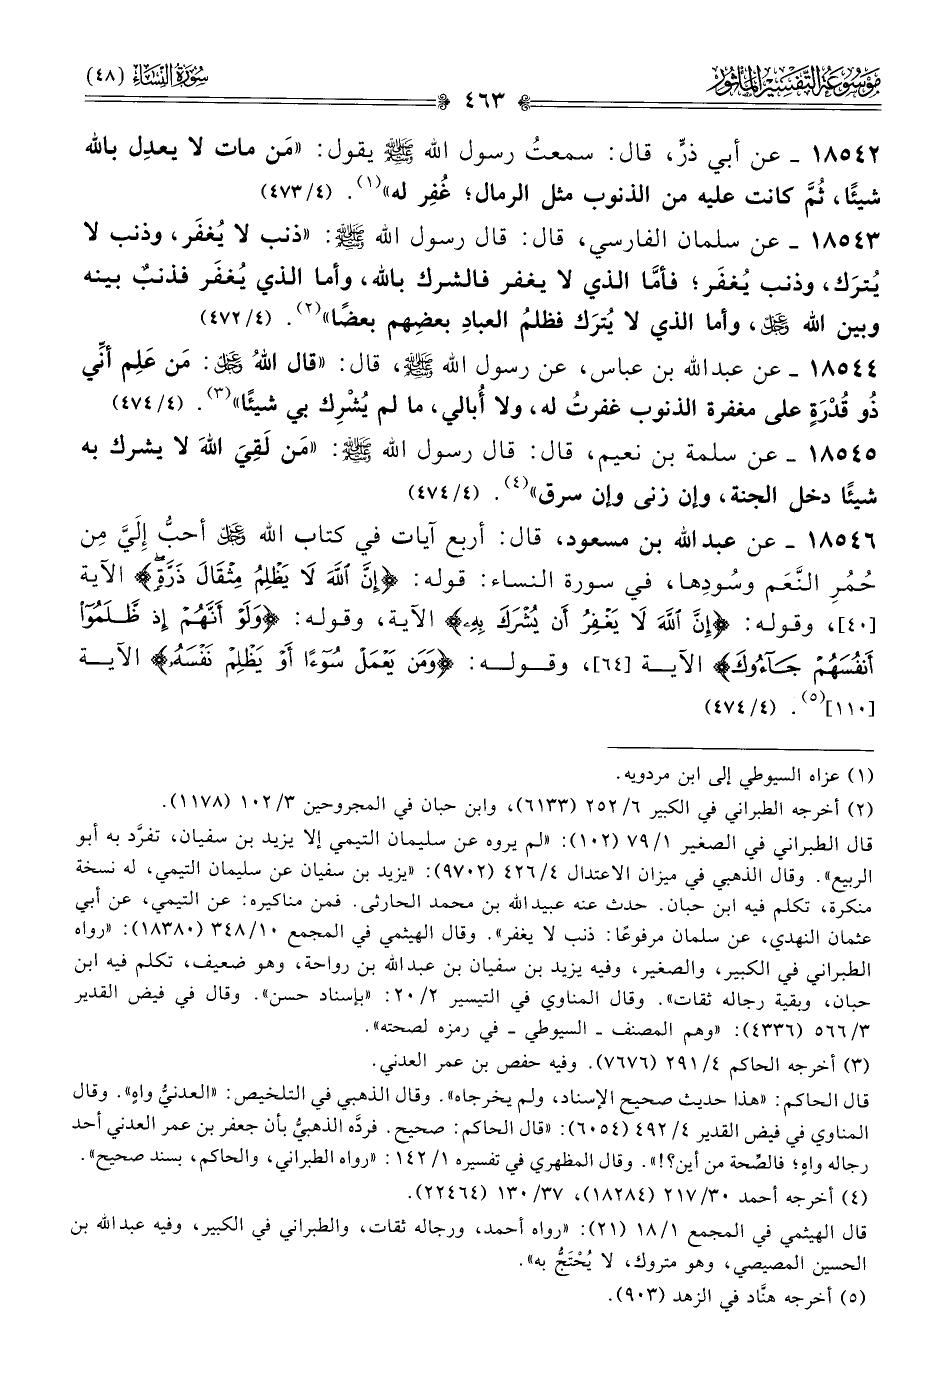 مَوسُوعَة التَّفسِير المَأثُور
سُورَةُ النِّسَاءِ (٤٨)
٤٦٣
١٨٥٤٢ ـ عن أبي ذرٍّ، قال: سمعتُ رسول الله ﷺ يقول: «مَن مات لا يعدِل بالله
شيئًا، ثُمَّ كانت عليه من الذنوب مثل الرمال؛ غُفِر له»(١). (٤٧٣/٤)
١٨٥٤٣ ـ عن سلمان الفارسي، قال: قال رسول الله ﷺ: «ذنب لا يُغفَر، وذنب لا
يُترَك، وذنب يُغفَر؛ فأمَّا الذي لا يغفر فالشرك بالله، وأما الذي يُغفَر فذنبٌ بينه
وبين الله ﷿، وأما الذي لا يُترَك فظلمُ العبادِ بعضِهم بعضًا»(٢). (٤٧٢/٤)
١٨٥٤٤ ـ عن عبدالله بن عباس، عن رسول الله ﷺ، قال: «قال اللهُ ﷿: مَن عَلِم أنِّي
ذُو قُدْرَةٍ على مغفرة الذنوب غفرتُ له، ولا أُبالي، ما لم يُشْرِك بي شيئًا»(٣). (٤٧٤/٤)
١٨٥٤٥ ـ عن سلمة بن نعيم، قال: قال رسول الله ﷺ: «مَن لَقِيَ اللهَ لا يشرك به
شيئًا دخل الجنة، وإن زنى وإن سرق»(٤). (٤٧٤/٤)
١٨٥٤٦ ـ عن عبدالله بن مسعود، قال: أربع آيات في كتاب الله ﷿ أحبُّ إلَيَّ مِن
حُمُرِ النَّعَم وسُودِها، في سورة النساء: قوله: ﴿إِنَّ ٱللَّهَ لَا يَظْلِمُ مِثْقَالَ ذَرَّةٍۖ﴾ الآية
[٤٠]، وقوله: ﴿إِنَّ ٱللَّهَ لَا يَغْفِرُ أَن يُشْرَكَ بِهِۦ﴾ الآية، وقوله: ﴿وَلَوْ أَنَّهُمْ إِذ ظَّلَمُوٓا۟
أَنفُسَهُمْ جَآءُوكَ﴾ الآية [٦٤]، وقوله: ﴿وَمَن يَعْمَلْ سُوٓءًا أَوْ يَظْلِمْ نَفْسَهُۥ﴾ الآية
[١١٠](٥). (٤٧٤/٤)
(١) عزاه السيوطي إلى ابن مردويه.
(٢) أخرجه الطبراني في الكبير ٢٥٢/٦ (٦١٣٣)، وابن حبان في المجروحين ١٠٢/٣ (١١٧٨).
قال الطبراني في الصغير ٧٩/١ (١٠٢): «لم يروه عن سليمان التيمي إلا يزيد بن سفيان، تفرَّد به أبو
الربيع». وقال الذهبي في ميزان الاعتدال ٤٢٦/٤ (٩٧٠٢): «يزيد بن سفيان عن سليمان التيمي، له نسخة
منكرة، تكلم فيه ابن حبان. حدث عنه عبيدالله بن محمد الحارثى. فمن مناكيره: عن التيمي، عن أبي
عثمان النهدي، عن سلمان مرفوعًا: ذنب لا يغفر». وقال الهيثمي في المجمع ٣٤٨/١٠ (١٨٣٨٠): «رواه
الطبراني في الكبير، والصغير، وفيه يزيد بن سفيان بن عبدالله بن رواحة، وهو ضعيف، تكلم فيه ابن
حبان، وبقية رجاله ثقات». وقال المناوي في التيسير ٢٠/٢: «بإسناد حسن». وقال في فيض القدير
٥٦٦/٣ (٤٣٣٦): «وهم المصنف ـ السيوطي ـ في رمزه لصحته».
(٣) أخرجه الحاكم ٢٩١/٤ (٧٦٧٦). وفيه حفص بن عمر العدني.
قال الحاكم: «هذا حديث صحيح الإسناد، ولم يخرجاه». وقال الذهبي في التلخيص: «العدنيُّ واهٍ». وقال
المناوي في فيض القدير ٤٩٢/٤ (٦٠٥٤): «قال الحاكم: صحيح. فردَّه الذهبيُّ بأن جعفر بن عمر العدني أحد
رجاله واهٍ؛ فالصِّحة من أين؟!». وقال المظهري في تفسيره ١٤٢/١: «رواه الطبراني، والحاكم، بسند صحيح».
(٤) أخرجه أحمد ٢١٧/٣٠ (١٨٢٨٤)، ١٣٠/٣٧ (٢٢٤٦٤).
قال الهيثمي في المجمع ١٨/١ (٢١): «رواه أحمد، ورجاله ثقات، والطبراني في الكبير، وفيه عبدالله بن
الحسين المصيصي، وهو متروك، لا يُحْتَجُّ به».
(٥) أخرجه هنَّاد في الزهد (٩٠٣).